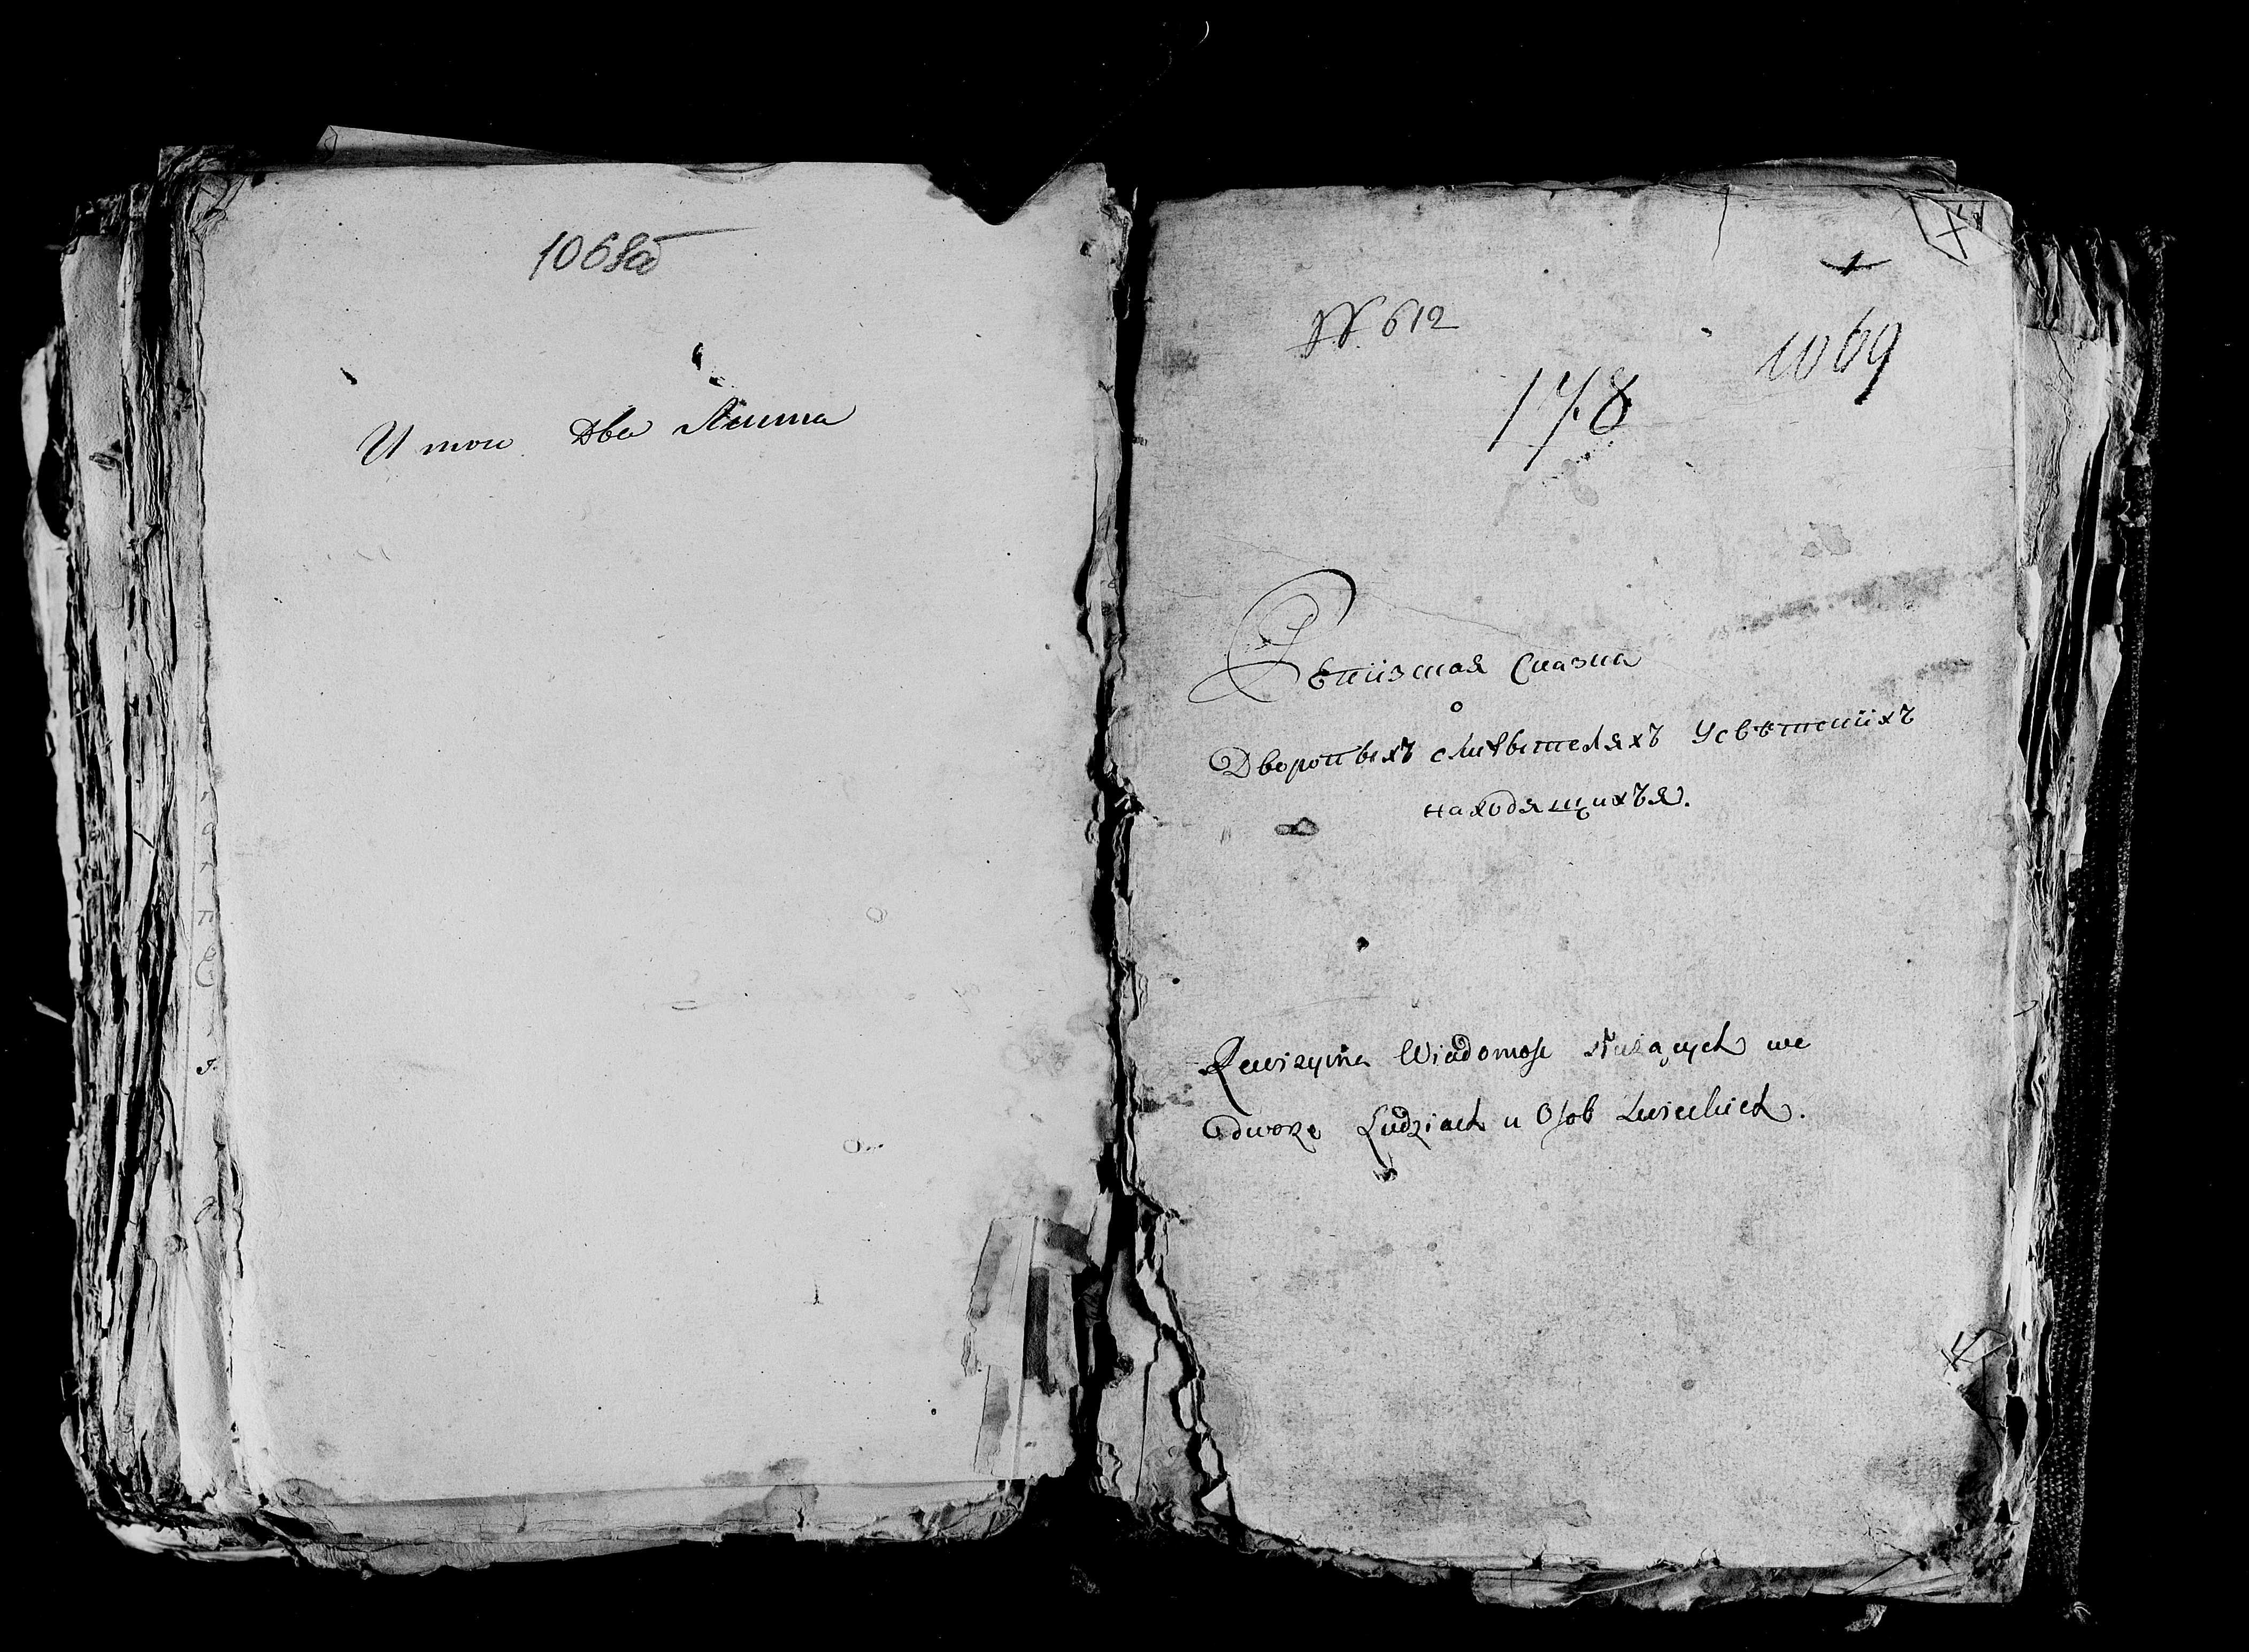 1068об
И того Два Листа
№ 612
1069
178
Ревизская Сказка
о
Дворовыхъ служителяхъ Усвѣтскихъ
находящихъя.
Rewizyina Wiadomość służących we
dworze Ludziach u Osob Swieckich.